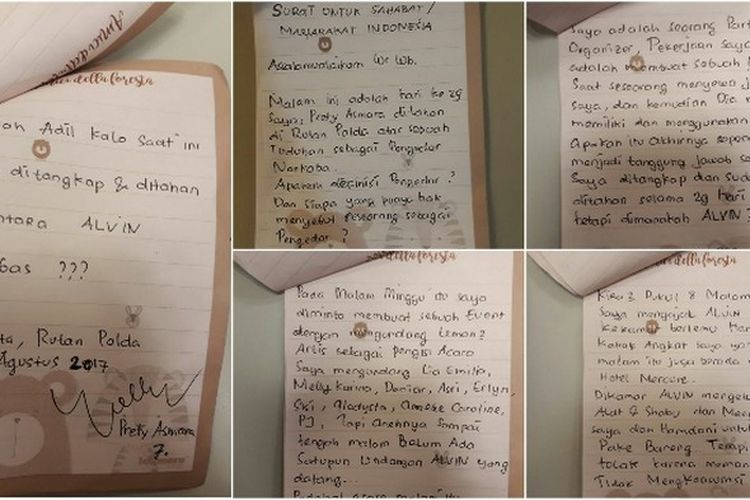 Amici della
della foresta
Adil Kalo Saat ini
ditangkap & ditahan
ALVIN
bas ???
Rutan Polda
Agustus 2017
Prety Asmara
7.
SURAT UNTUK SAHABAT /
MASYARAKAT INDONESIA
Assalamualaikum Wr Wb.
Malam ini adalah hari ke 29
Saya, Prety Asmara ditahan
di Rutan Polda atas sebuah
Tuduhan sebagai Pengedar
Narkoba.
Apakah definisi Pengedar ?
Dan siapa yang punya hak
menyebut seseorang sebagai
Pengedar ?
Saya adalah seorang Part
Organizer, Pekerjaan saya
adalah membuat sebuah
Saat seseorang menyewa J
saya, dan kemudian Dia
memiliki dan menggunakan
Apakah itu akhirnya seper
menjadi tanggung jawab s
Saya ditangkap dan Sud
ditahan selama 29 hari
tetapi dimanakah ALVIN
della foresta
Pada Malam Minggu itu saya
diminta membuat sebuah Event
dengan mengundang teman2
Artis sebagai pengisi Acara
Saya mengundang Lia Emilia,
Melly Karina, Daniar, Asri, Erlyn,
Gladysta, Anneke Caroline,
PJ, Tapi Anehnya Sampai
tengah malam Belum Ada
Satupun Undangan ALVIN yang
datang...
della foresta
Kira2 Pukul 8 Malam
Saya mengajak ALVIN
Kekamar bertemu Ham
Kakak Angkat saya yan
malam itu juga berada
Hotel Mercure...
Dikamar ALVIN mengelu
Alat & Shabu dan Men
saya dan Hamdani untuk
Pake Bareng. Tempi
tolak karena meman
Tidak Mengkonsumsi